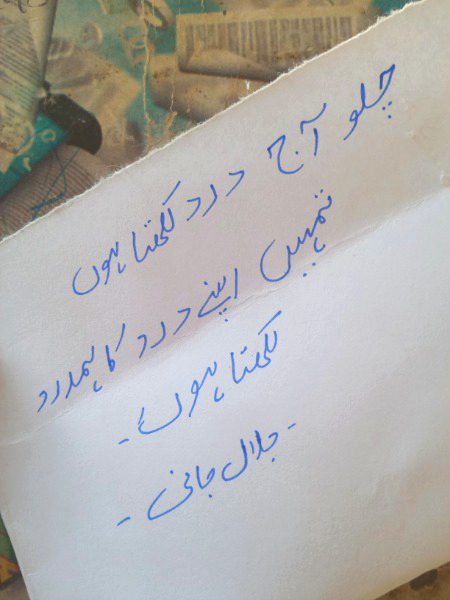 چلو آج درد لکھتا ہوں
تمہیں اپنے درد کا ہمدرد
لکھتا ہوں۔
۔ جلال جانی ۔